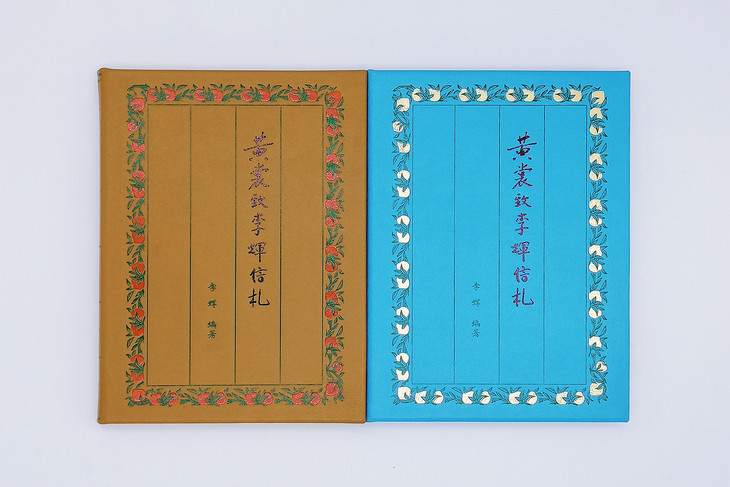 黄裳致李輝信札
李輝 編著
黄裳致李輝信札
李輝 編著